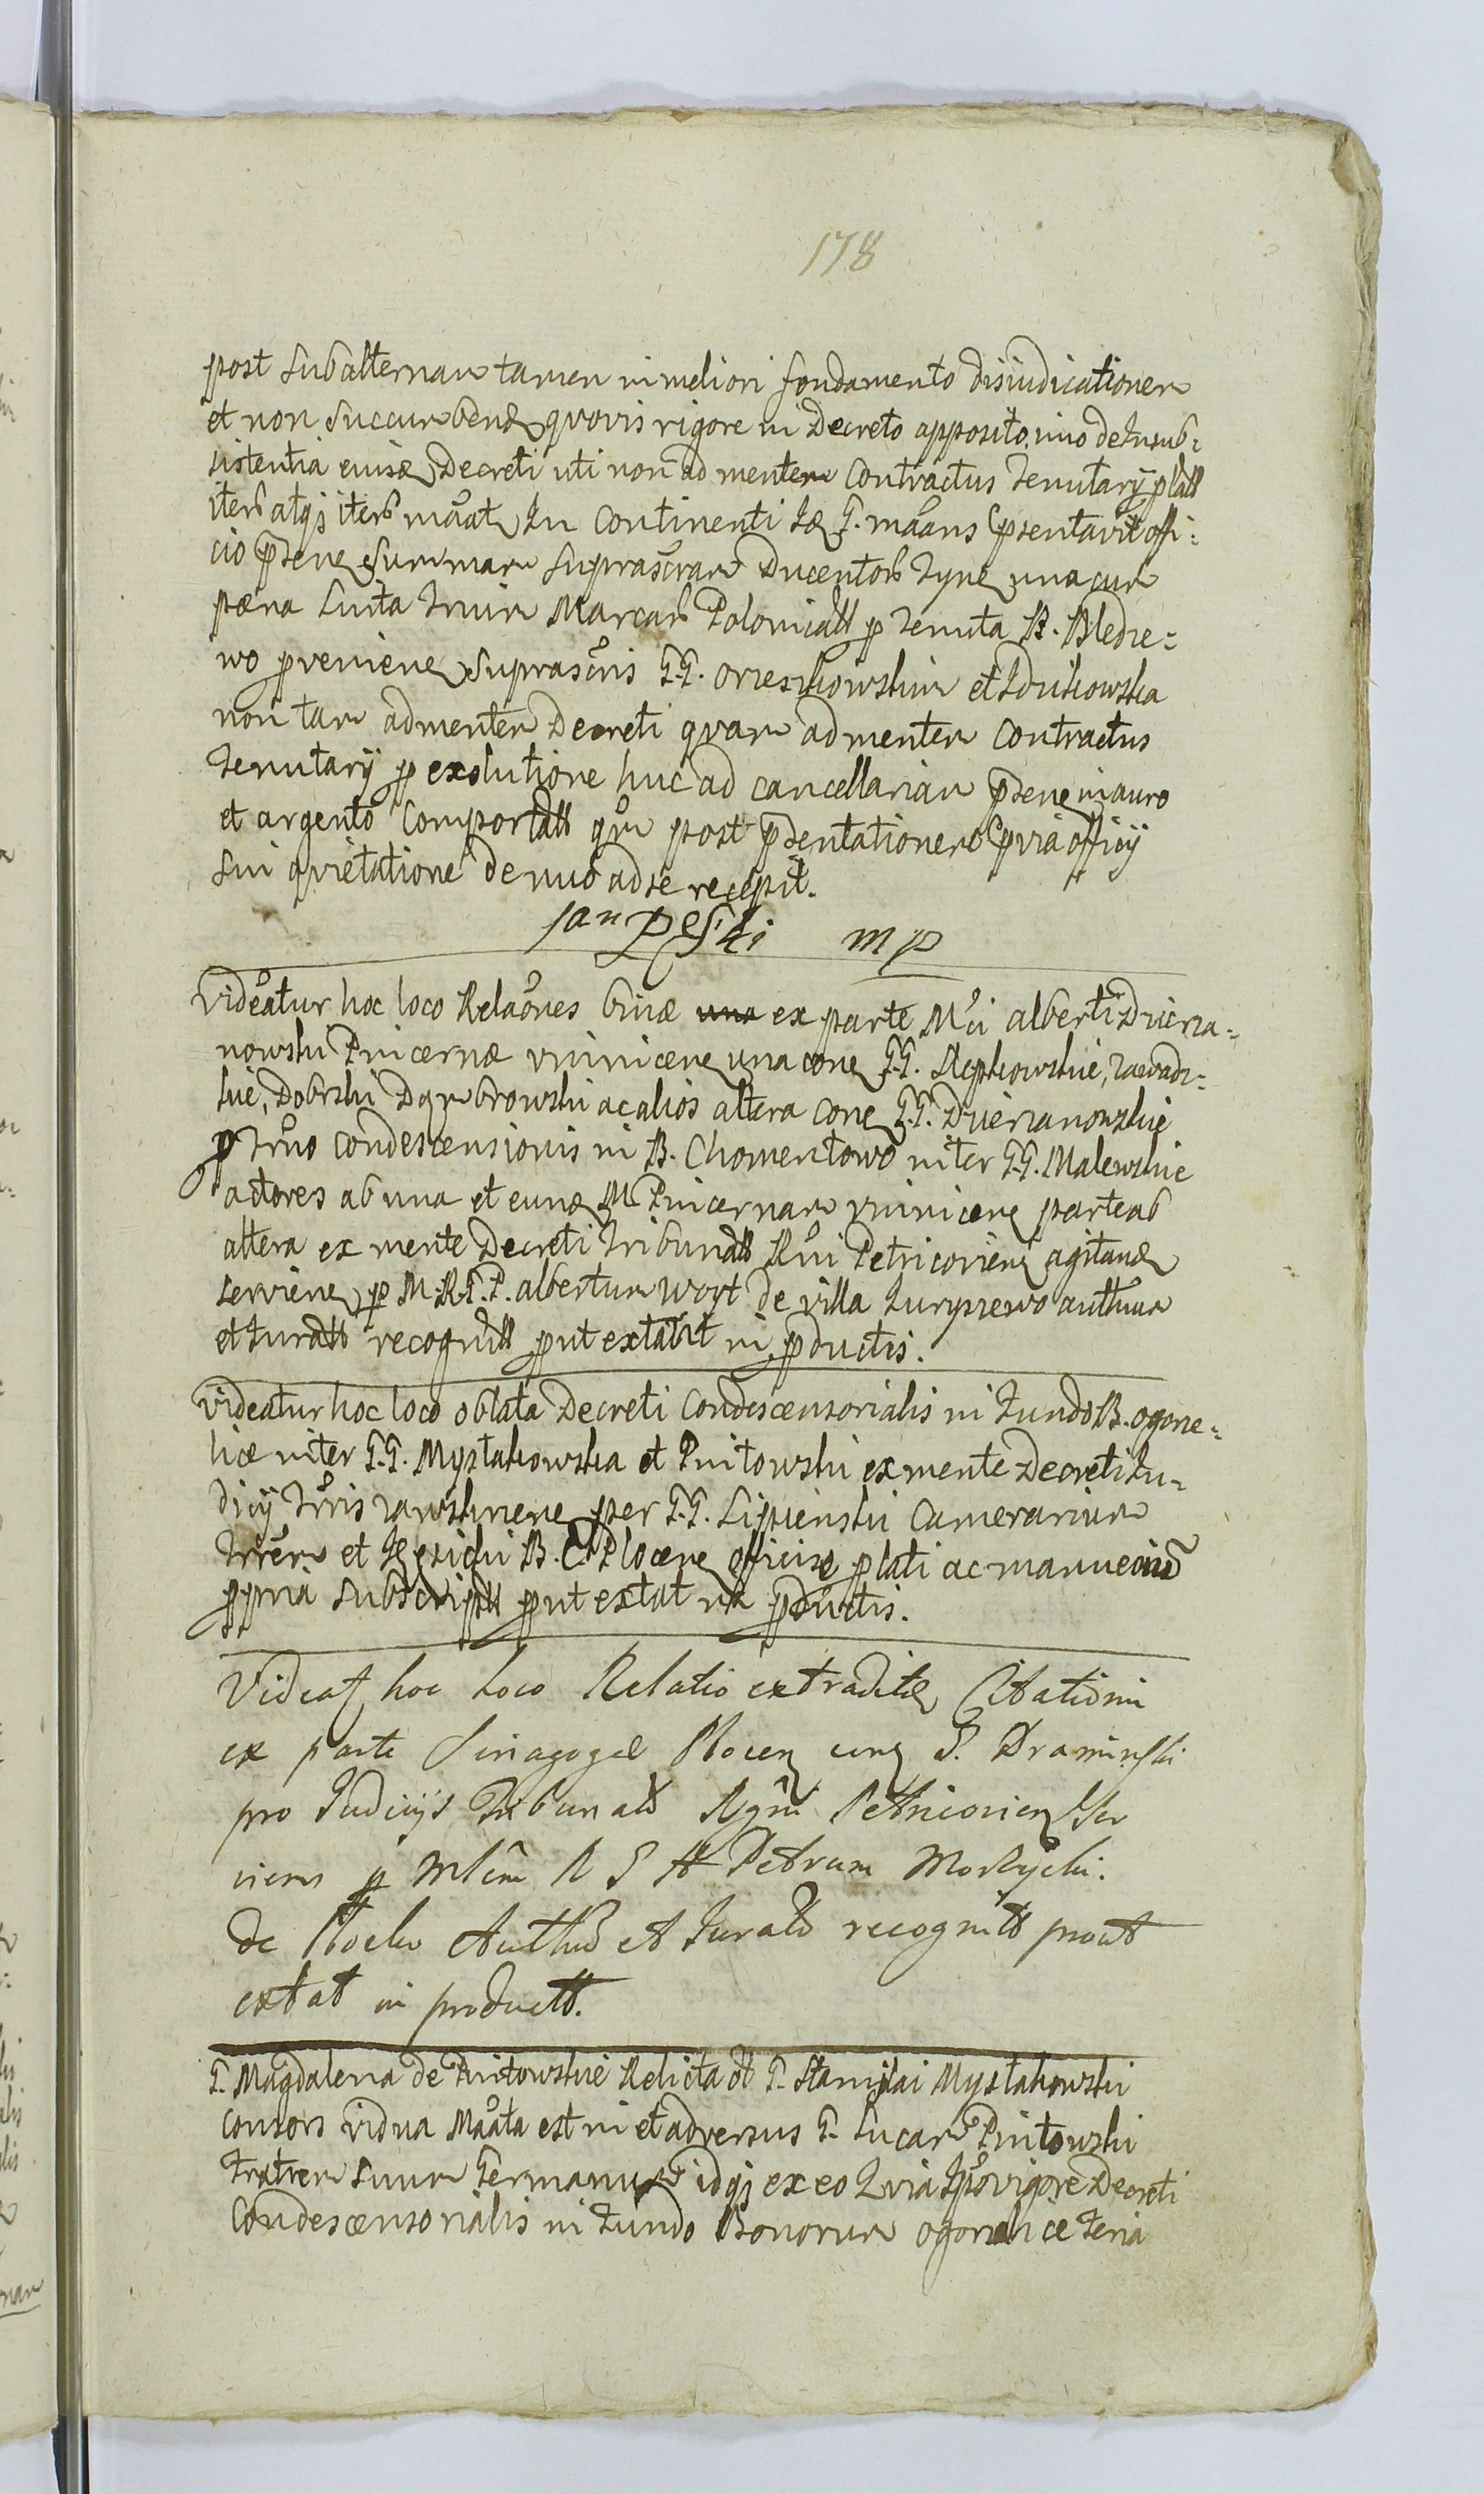 178
post Subalternam tamen in meliori fondamento disiudicationem
et non Succumbend quovis rigore in Decreto apposito, imo de Insub=
sistentia eiusd Decreti uti non ad mentem Contractus Tenutarij plati
iterb atqj iterb māat In Continenti Id G. māans Psentavit offi=
cio psen Summam Suprascram Ducentorb Tynf una cum
pæna Luita Trium Marcarb Polonicall p Tenuta B. Bledze=
wo provenien Suprascris G.G. Orzeszkowskim et Idzikowska
non tam ad mentem Decreti quam ad mentem Contractus
Tenutarij p exolutione huc ad cancellariam psen in auro
et argento Comportatt qm post psentationem Cpvia officij
Sui quietatione denuo ad se recepit.
Jan Peski mp
Videatur hoc loco Relaōnes binæ una ex parte Mci Alberti Dzierza=
nowski Pincernæ vninicen una con G.G. Rępkowskie, Zawadz=
kie, Dobrski Dąmbrowski ac alios altera con G.G. Dzierzanowskie
p Trno condescensionis in B. Chomentowo inter G.G. Malewskie
actores ab una et eund M. Pincernam vninicen parte ab
altera ex mente Decreti Tribunatt Rni Petricovien agitand
servien p M. R. G. P. Albertum Woyt de villa Juryszewo authum
et Juratt recognitt put extabit in pductis.
Videatur hoc loco oblata Decreti Condescensorialis in Fundo B. Ogone=
lice inter G.G. Mystakowska et Pnitowski ex mente Decreti Iu=
dicij Trris Zawskrnen per G.G. Lipienski Camerarium
Trrem et B. C. Plocen officiose plati ac manu eiusd
ppria Subscriptt put extat in pductis.
Videat hoc Loco Relatio extradit Citationis
ex parte Sinagogæ Plocen con G. Draminski
pro Judicijs Tribunatt Rgni Petricovien Ser
viens p Mlem R G H Petrum Morzycki.
de Plocko Authd et Juratt recognitt prout
extat in productt.
G. Magdalena de Pnitowskie Relicta ol G. Stanislai Mystakowski
consors vidua Māata est in et adversus G. Lucam Pnitowski
Fratrem Suum Germanum idqj ex eo Quia Ipso vigore Decreti
Condescensorialis in Fundo Bonorum Ogonalice Feria